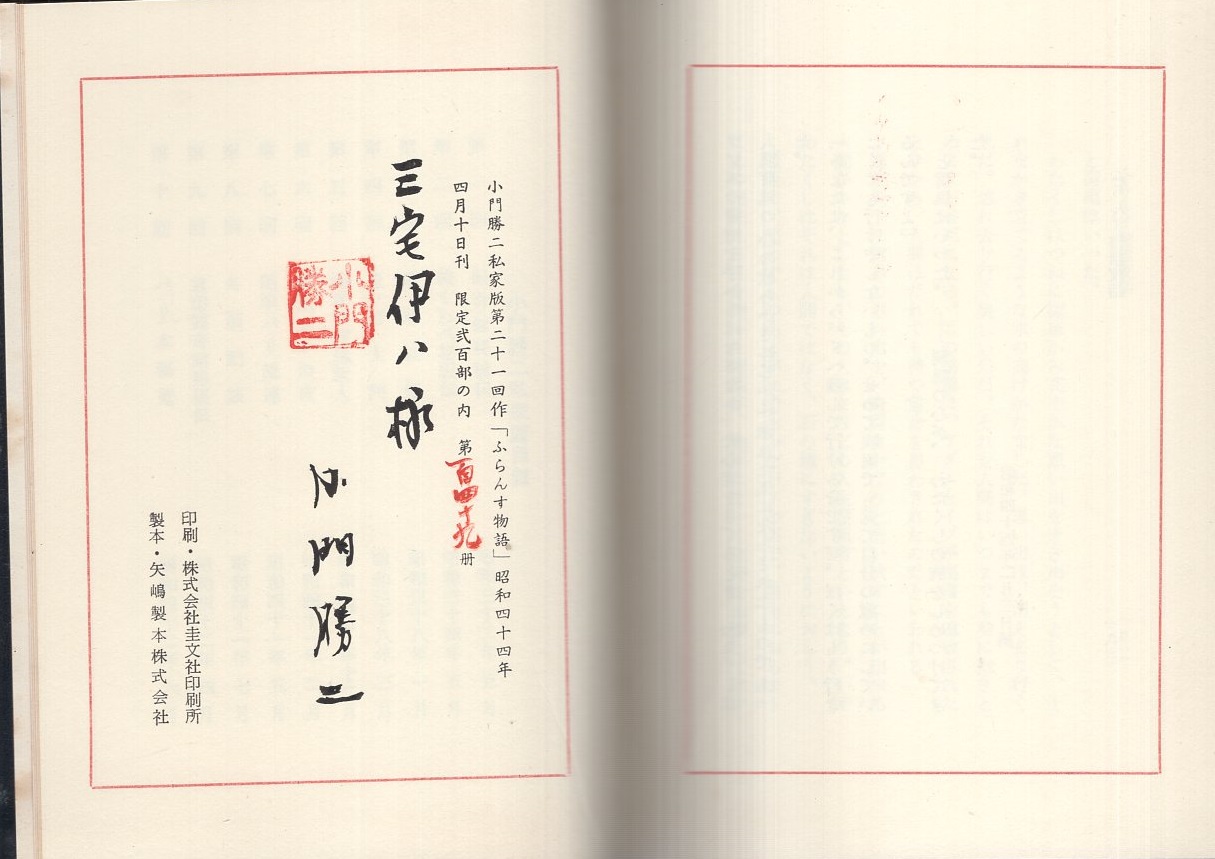 小門勝二私家版第二十一回作「ふらんす物語」昭和四十四年
四月十日刊　限定弐百部の内　第百四十九册
三宅伊八様
小門勝二
小門勝二
印刷・株式会社圭文社印刷所
製本・矢嶋製本株式会社